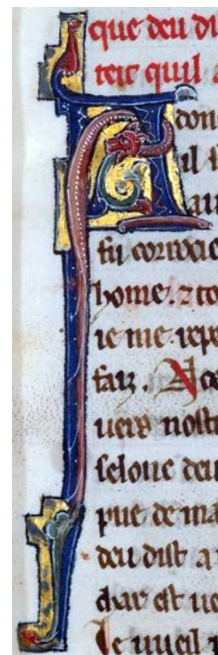 que deu di
teit quil
A don
il
au
fu corroce
home. ⁊ co
ie me repe
faiz. A co
uers nostr
selonc deu
pue de ma
deu dist a
char est ue
Je uueil